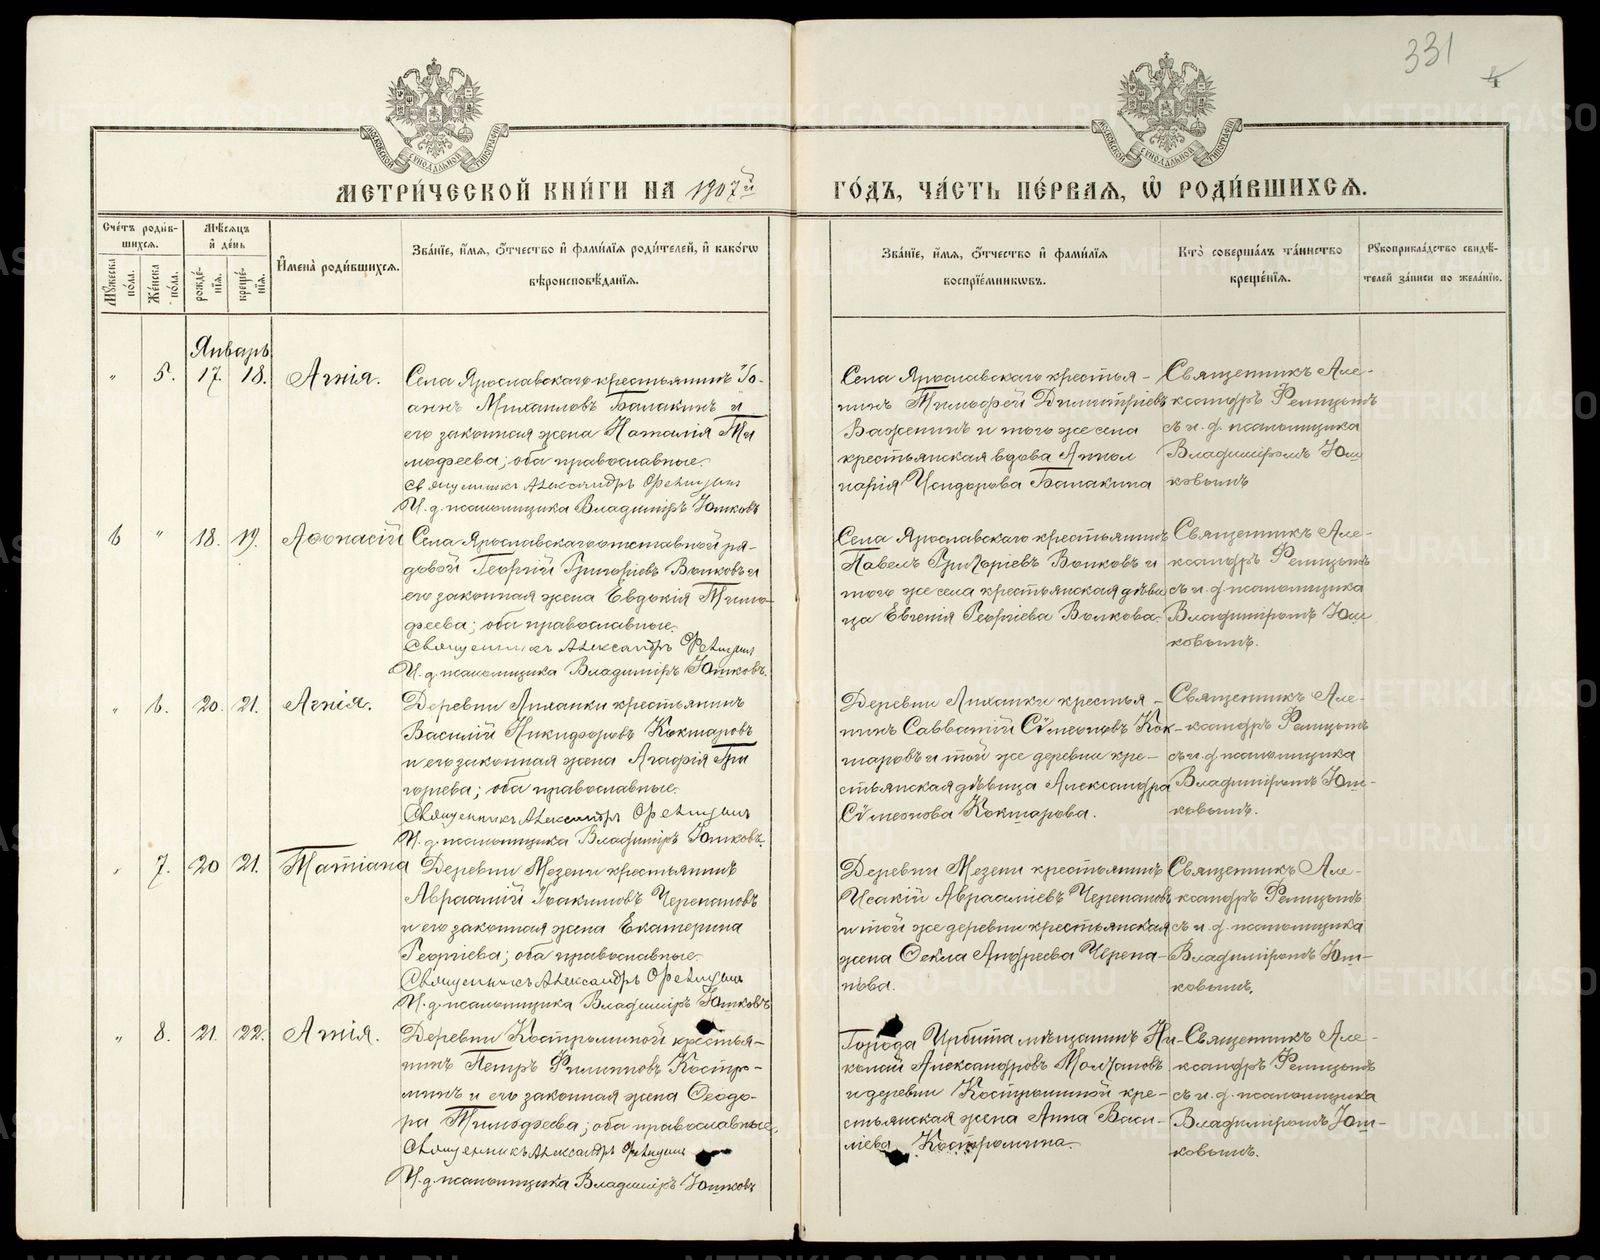 331
4
МОСКОВСКОЙ СѴНОДАЛЬНОЙ ТИПОГРАФІИ
МОСКОВСКОЙ СѴНОДАЛЬНОЙ ТИПОГРАФІИ
МЕТРИ́ЧЕСКОЙ КНИ́ГИ НА 1907й ГО́ДЪ, ЧА́СТЬ ПЕ́РВАЯ, Ѡ҆ РОДИ́ВШИХСЯ.
Сче́тъ роди́вшихся.
Мꙋ́жеска по́ла.
Же́нска по́ла.
Мѣ́сяцъ и҆ де́нь
рожде́нїя.
креще́нїя.
И҆мена̀ роди́вшихся.
Зва́нїе, и҆́мя, ѻ҆́тчество и҆ фами́лїя роди́телей, и҆ како́гѡ
вѣроисповѣ́данїя.
Зва́нїе, и҆́мя, ѻ҆́тчество и҆ фами́лїя
воспрїе́мникѡвъ.
Кто̀ соверша́лъ та́инство
креще́нїя.
Рꙋкоприкла́дство свидѣ́-
телей за́писи по жела́нїю.
Январь
" 5. 17. 18. Агнія.
Села Ярославскаго крестьянинъ Іо-
аннъ Михаиловъ Балакинъ и
его законная жена Наталія Ти
мофеева; оба православные.
Священникъ Александръ Фелицынъ
И. д. псаломщика Владиміръ Юшковъ
Села Ярославскаго крестья-
нинъ Тимофей Димитріевъ
Важенинъ и того же села
крестьянская вдова Апол
нарія Исидорова Балакина
Священникъ Але-
ксандръ Фелицынъ
съ и. д. псаломщика
Владиміромъ Юш
ковымъ
6 " 18. 19. Аѳонасій
Села Ярославскаго отставной ря-
довой Георгій Григоріевъ Волковъ и
его законная жена Евдокія Тимо-
феева; оба православные.
Священникъ Александръ Фелицынъ
И. д. псаломщика Владиміръ Юшковъ.
Села Ярославскаго крестьянинъ
Павелъ Григоріевъ Волковъ и
того же села крестьянская дѣви
ца Евгенія Георгіева Волкова.
Священникъ Але-
ксандръ Фелицынъ
съ и. д. псаломщика
Владиміромъ Юш
ковымъ.
" 6. 20. 21. Агнія.
Деревни Лиханки крестьянинъ
Василій Никифоровъ Кокшаровъ
и его законная жена Агафія Гри
горьева; оба православные.
Священникъ Александръ Фелицынъ
И. д. псаломщика Владиміръ Юшковъ.
Деревни Лиханки крестья-
нинъ Савватій Сѵмеоновъ Кок-
шаровъ и той же деревни кре-
стьянская дѣвица Александра
Сѵмеонова Кокшарова.
Священникъ Але-
ксандръ Фелицынъ
съ и. д. псаломщика
Владиміромъ Юш-
ковымъ.
" 7. 20 21. Татіана
Деревни Мезени крестьянинъ
Авраамій Іоакимовъ Черепановъ
и его законная жена Екатерина
Георгіева; оба православные.
Священникъ Александръ Фелицынъ
И. д. псаломщика Владиміръ Юшковъ
Деревни Мезени крестьянинъ
Исакій Авраамiевъ Черепановъ
и той же деревни крестьянская
жена Ѳекла Андреева Черепа-
нова.
Священникъ Але-
ксандръ Фелицынъ
съ и. д. псаломщика
Владиміромъ Юш-
ковымъ.
" 8. 21. 22. Агнія.
Деревни Костроминой крестья-
нинъ Петръ Филипповъ Костро-
минъ и его законная жена Ѳеодо-
ра Тимофеева; оба православные.
Священникъ Александръ Фелицынъ
И. д. псаломщика Владиміръ Юшковъ
Города Ирбита мѣщанинъ Ни-
колай Александровъ Молчановъ
и деревни Костроминой кре-
стьянская жена Анна Васи-
ліева Костромина.
Священникъ Але-
ксандръ Фелицынъ
съ и. д. псаломщика
Владиміромъ Юш-
ковымъ.
METRIKI.GASO-URAL.RU